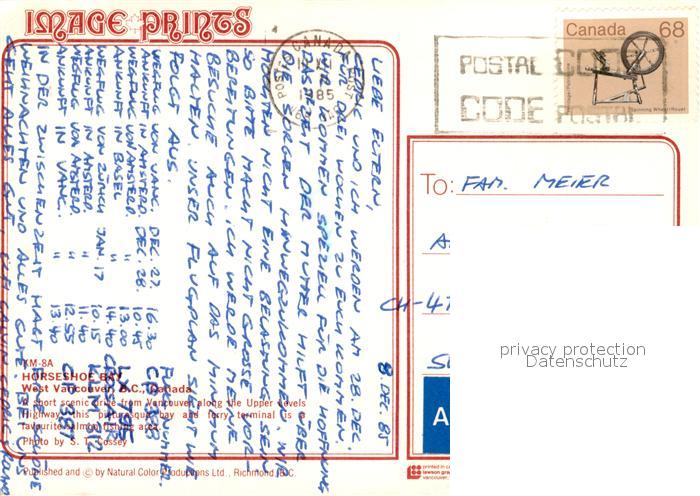 IMAGE PRINTS
CANADA
1985
POSTAL CODE
CODE POSTAL
Canada 68
Spinning Wheel/Rouet
To: FAM. MEIER
CH-41
privacy protection
Datenschutz
A
8. DEZ. 85
LIEBE ELTERN,
CEDRIC UND ICH WERDEN AM 28. DEZ.
FÜR DREI WOCHEN ZU EUCH KOMMEN.
WIR KOMMEN SPEZIELL FÜR DIE HOFFNUNG
DASS ES DER MUTTER HILFT ÜBER
DIE SORGEN HINWEGZUKOMMEN. WIR
MÖCHTEN NICHT EINE BELASTUNG SEIN
SO BITTE MACHT NICHT GROSSE VOR-
BEREITUNGEN. ICH WERDE MEINE
BESUCHE AUCH AUF DAS MINIMUM
HALTEN. UNSER FLUGPLAN SIEHT WIE
FOLGT AUS.
FLUGNUMMER
WEGFLUG VON VANC. DEZ. 27. 16.30
ANKUNFT IN AMSTERD. DEZ. 28. 10.45
WEGFLUG VON AMSTERD. " 13.00
ANKUNFT IN BASEL " 14.40
WEGFLUG VON ZÜRICH JAN. 17 10.15
ANKUNFT IN AMSTERD. " 11.40
WEGFLUG VON AMSTERD. " 12.55
ANKUNFT IN VANC. " 13.40
IN DER ZWISCHENZEIT HABT SCHÖNE
WEIHNACHTEN UND ALLES GUTE. UNS
GEHT ALLES GUT. CALVIN CEDRIC
KM-8A
HORSESHOE BAY
West Vancouver, B.C., Canada
A short scenic drive from Vancouver along the Upper Levels
Highway, this picturesque bay and ferry terminal is a
favourite salmon fishing area.
Photo by S. T. Cossey
Published and © by Natural Color Productions Ltd., Richmond, B.C.
printed in
lawson
vancouver,